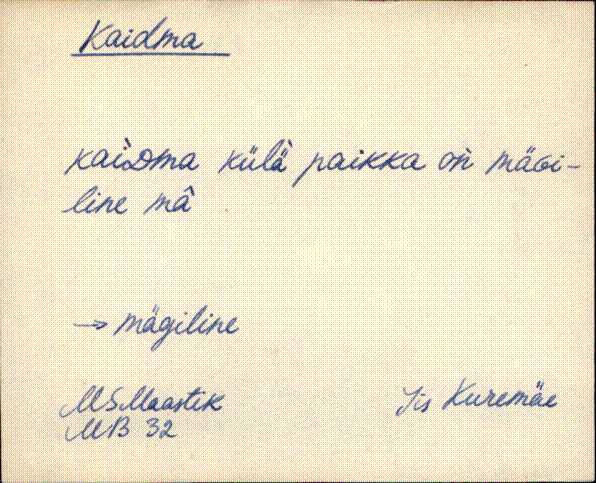 Kaidma
kaìDma külä̀ paikka oǹ mäGi-
line mâ
→ mägiline
MSMaastik
MB 32
Jis Kuremäe